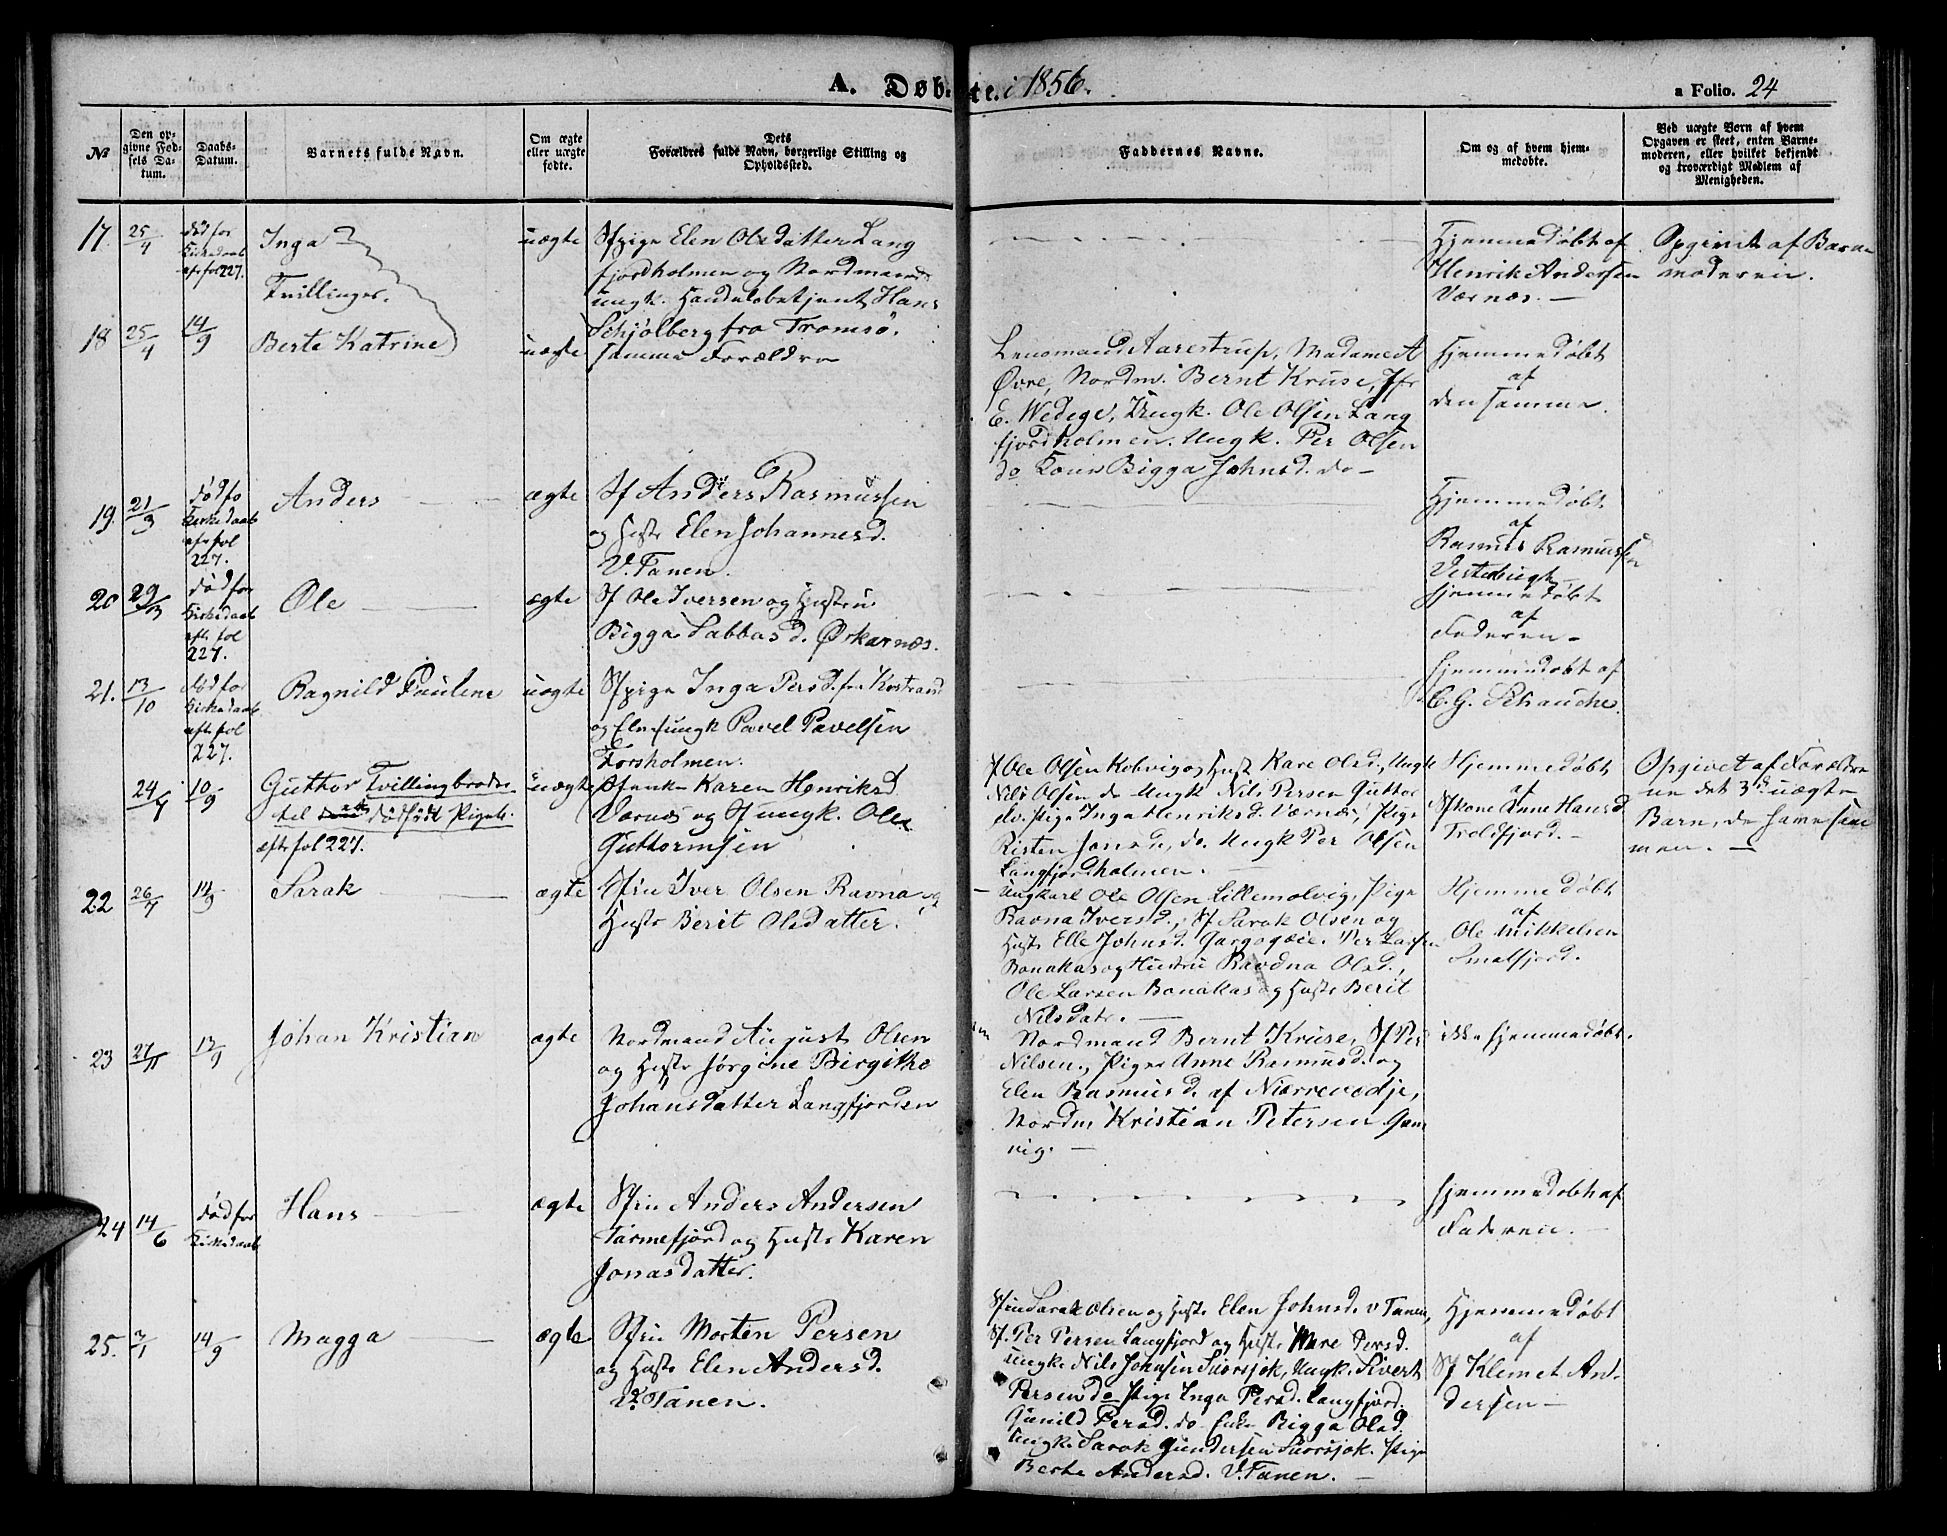 A. Døbte i 1856.
a Folio. 24
№
Den op-
givne Fød-
sels Da-
tum.
Daabs-
Datum.
Barnets fulde Navn.
Om ægte
eller uægte
fødte.
Dets
Forældres fulde Navn, borgerlige Stilling og
Opholdssted.
Faddernes Navne.
Om og af hvem hjem-
medøbte.
Ved uægte Børn af hvem
Opgaven er skeet, enten Barne-
moderen, eller hvilket bekjendt
og troværdigt Medlem af
Menigheden.
17.
25/4
død for
Kirkedaab
efr fol 227.
Inga
Tvillinger.
uægte
Sfpige Elen Olsdatter Lang
fjordholmen og Nordmand
ungk. Handelsbetjent Hans
Schjølberg fra Tromsø.
Hjemmedøbt af
Henrik Andersen
Værnæs.
Opgivet af Barne
moderen.
18
25/4
14/9
Berte Katrine
uægte
samme Forældre
Lensmand Aarestrup, Madame A
Øvre, Nordm. Bernt Kruse, Jfr
E. Wedege, Ungk. Ole Olsen Lang
fjordholmen. Ungk. Per Olsen
do Kone Bigga Johnsd. do
Hjemmedøbt
af
den samme.
19.
21/3
død fo
Kirkedaab
efr fol
227.
Anders
ægte
Sf Anders Rasmussen
og Hustr Elen Johannesd.
V. Tanen.
Hjemmedøbt
af
Rasmus Rasmussen
20
29/3
død for
Kirkedaab
eftr fol
227.
Ole
ægte
Sf Ole Iversen og Hustru
Bigga Sabbasd. Ørkarnæs.
Hjemmedøbt
af
Faderen
21.
13/10
død for
Kirkedaab
eftr fol
227.
Ragnild Pauline
uægte
Sfpige Inga Persd. fra Kostrand
og Elvsungk Pavel Pavelsen
Forsholmen.
Hjemmedøbt af
C. G. Schanche.
24/4
10/9
Guttor Tvillingbroder
til dødfødt Pigeb.
eftr fol 227.
uægte
Sfenke Karen Henriksd
Værnæs og Sf ungk. Ole
Guttormsen
Sf Ole Olsen Kobvig og Hust Kare Olsd., Ungk
Nils Olsen do Ungk Nils Persen Guttor
elv. Pige Inga Henriksd. Værnæs, Pige
Risten Jonsd., do. Ungk Per Olsen
Langfjordholmen.
Hjemmedøbt
af
Sfkone Anne Hansd
Troldfjord.
Opgivet af Forældre
ne det 3de uægte
Barn, de have sam
men.
22
26/7
14/9
Sarak
ægte
Sfin Iver Olsen Ravna og
Hustr Berit Olsdatter.
Ungkarl Ole Olsen Lillemolvig, Pige
Ravna Iversd., Sf Sarak Olsen og
Hustr Elle Johnsd. Gargogæce. Per Larsen
Bonakas og Hustru Ravdna Olsd.,
Ole Larsen Bonakas og Hustr Berit
Nilsdatr.
Hjemmedøbt
af
Ole Mikkelsen
Smalfjord.
23
27/7
13/9
Johan Kristian
ægte
Nordmand August Olsen
og Hustr Jørgine Birgithe
Johansdatter Langfjorden
Nordmand Bernt Kruse, Sf Per
Nilsen, Pigen Anne Rasmusd. og
Elen Rasmusd. af Niarrevedje,
Nordm Kristian Petersen Gam
vig.
ikke hjemmedøbt.
24
14/6
død for
Kirkedaab
Hans
ægte
Sfin Anders Andersen
Tarmefjord og Hustr Karen
Jonasdatter.
Hjemmedøbt af
Faderen.
25.
3/1
14/9
Magga
ægte
Sfin Morten Persen
og Hustr Elen Andersd.
V. Tanen.
Sfin Sarak Olsen og Hustr Elen Johnsd. v Tanen,
Sf. Per Persen Langfjord og Hustr Mare Persd.
Ungk. Nils Johnsen Suorsjok, Ungk. Sivert
Persen do Pige Inga Persd. Langfjord.
Gunild Persd. do Enke Bigga Olsd.
Ungk. Sarak Gundersen Suorsjok. Pige
Berte Andersd. V. Tanen.
Hjemmedøbt
af
Sf Klemet An-
dersen